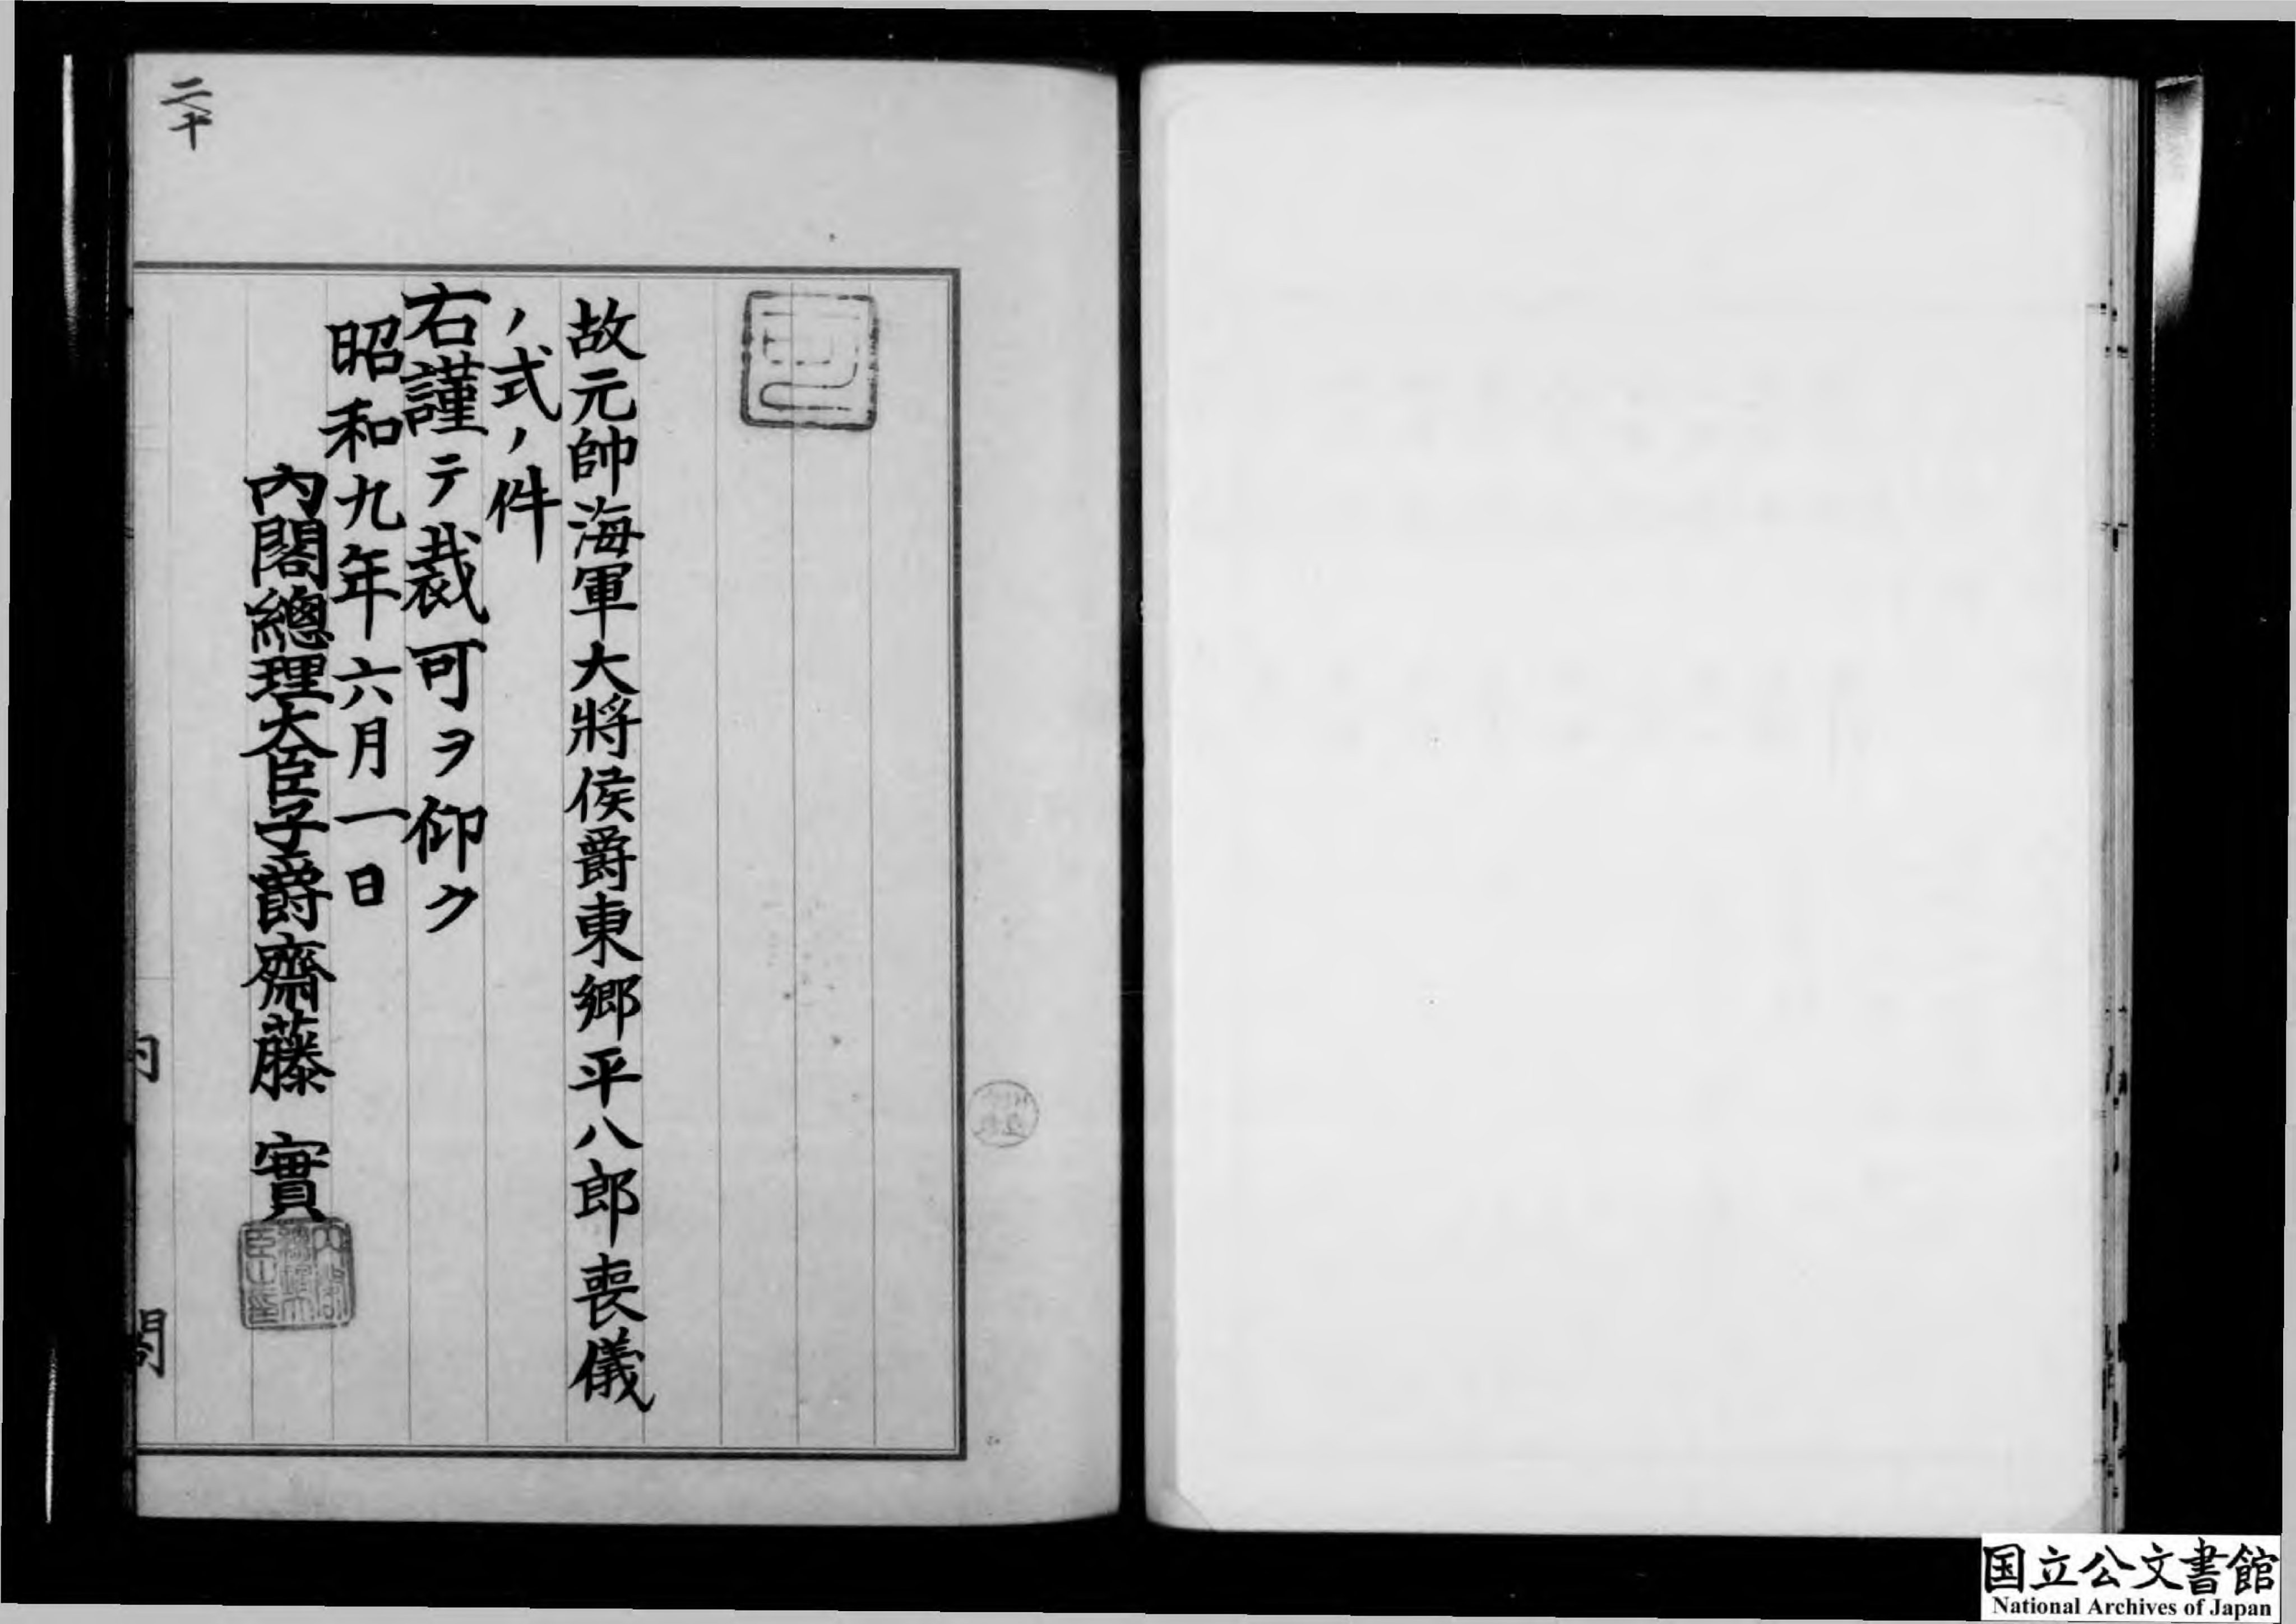 可
故元帥海軍大將侯爵東郷平八郎喪儀
ノ式ノ件
右謹テ裁可ヲ仰ク
昭和九年六月一日
內閣總理大臣子爵齋藤 實
內閣總理大臣之印
內 閣
二十
国立公文書館
National Archives of Japan